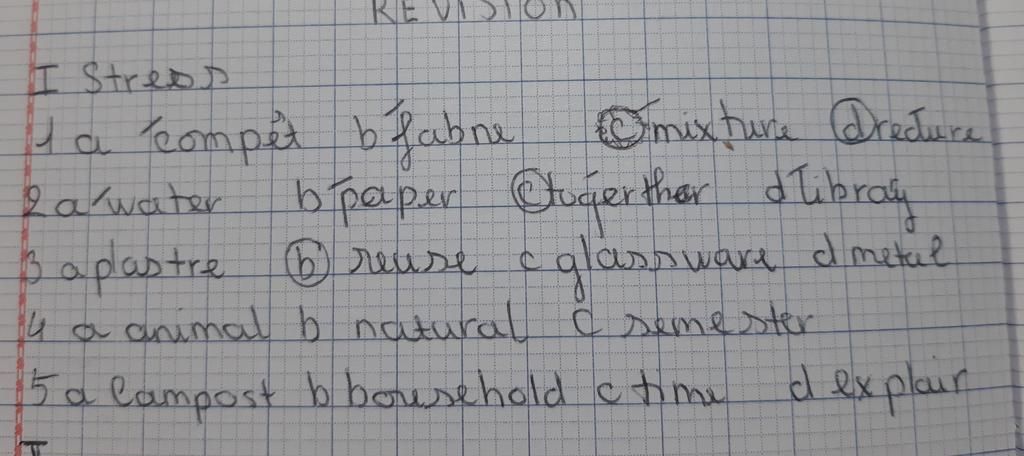 REVISION
I Stress
1 a compet b fabric c mixture d reduce
2 a water b paper c togerther d libray
3 a plastre b reuse c glassware d metal
4 a animal b natural c semester
5 a compost b household c time d explain